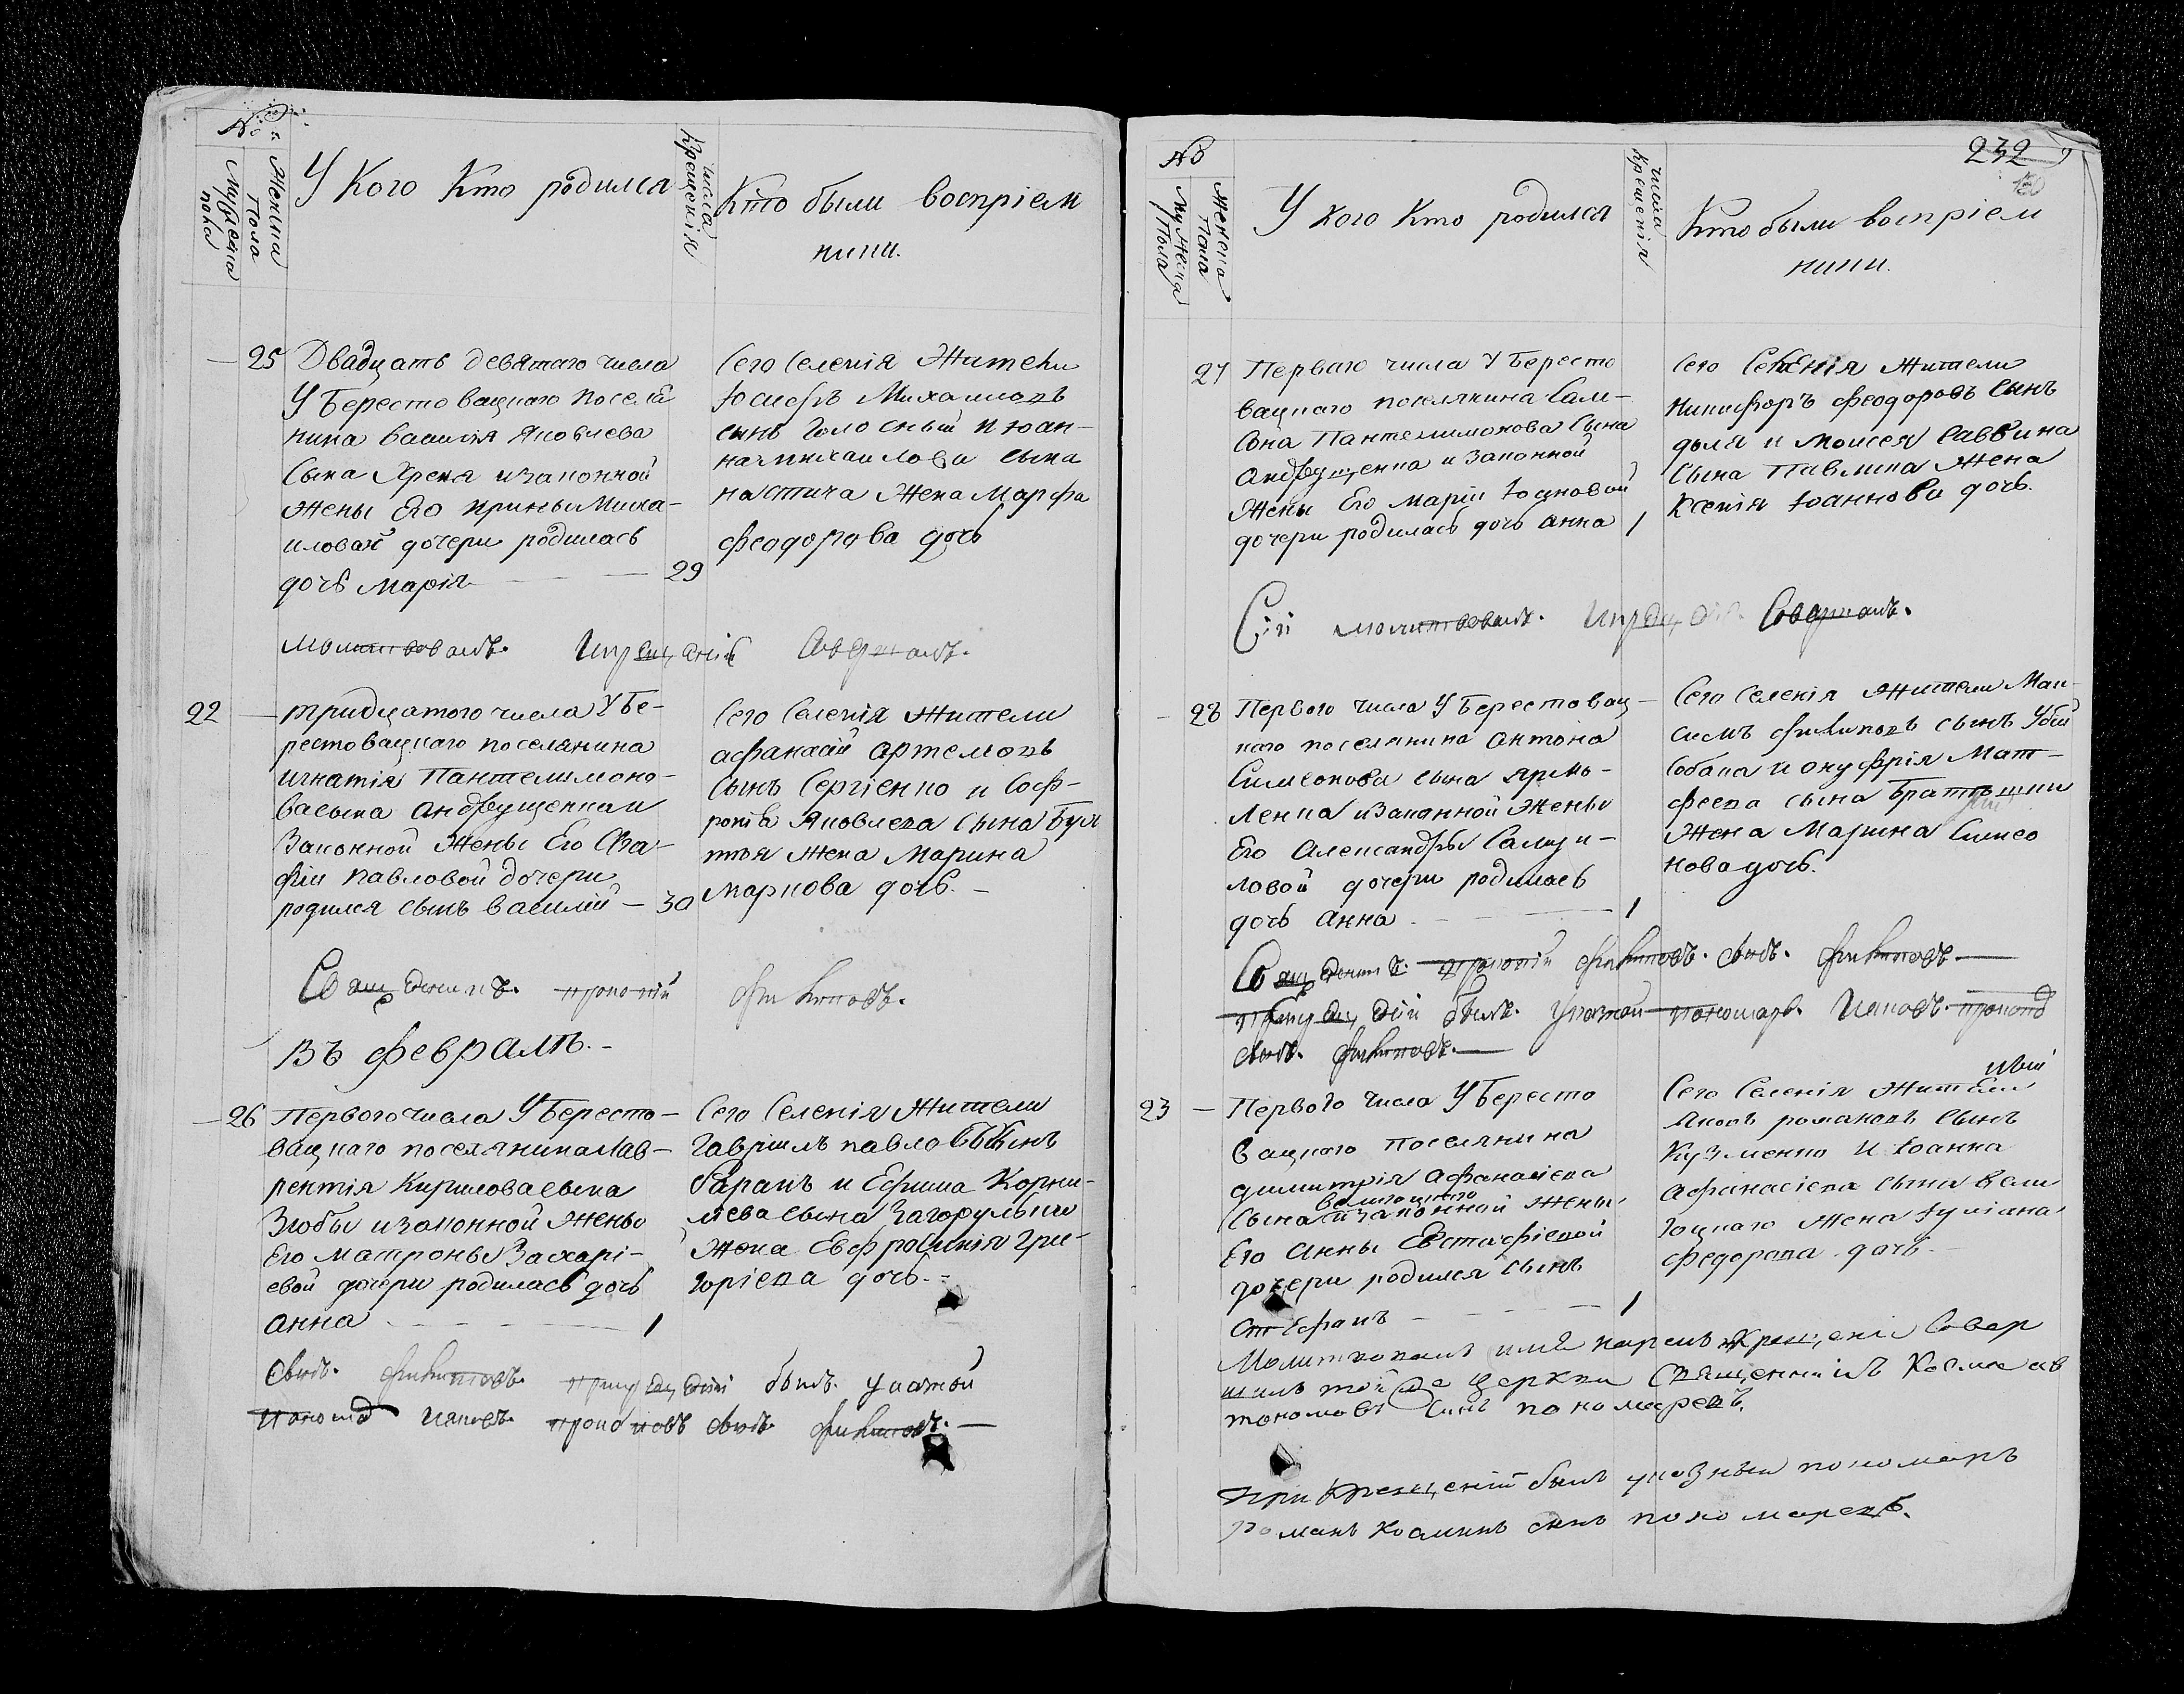 №
Мужеска пола
Женска Пола
У Кого Кто родился
числа Крещенія
Кто были воспріем
ники.
25
Двадцать девятаго числа
У Берестовацкаго поселя
нина василія Яковлева
Сына Хреня изаконной
жены Его ирины Миха-
иловой дочери родилась
дочь Марія
29
Сего Селенія Жители
Іосифъ Михаиловъ
сынъ Голосный и Іоан-
на михаилова сына
настича Жена Марфа
феодорова дочь
молитвовалъ. Икрещеніе Совершалъ.
22
тридцатого числа У Бе-
рестовацкаго поселянина
игнатія Пантелимоно-
ва сына андрущенка и
Законной Жены Его Ага-
фіи павловой дочери
родился сынъ василій — 30
Сего Селенія жители
афанасій артемовъ
Сынъ Сергіенко и Соф-
ронія Яковлева сына Бул
Жена Марина
маркова дочь.
Священникъ. прокопій филиповъ.
Въ февралѣ.
26
Первого числа У Бересто-
вацкаго поселянина Лав-
рентія Кирилова сына
Злобы изаконной Жены
Его матроны Захарі-
евой дочери родилась дочь
анна — 1
Сего Селенія Жители
Гавріилъ павловъ Сынъ
баранъ и Ефима Корни-
лієва сына Загорулька
жена Евфросинія Гри-
горіева дочь.
сынъ. филиповъ. прикрещеніи былъ. указной
пономар Ияковъ. прокоповъ сынъ филиповъ.
№
Мужеска Пола
Женска Пола
У кого Кто родился
числа Крещенія
232
Кто были воспріем
ники.
27
Перваго числа У Бересто
вацкаго поселянина Сам-
сона Пантелимонова Сына
андрущенка и Законной
Жены Его Маріи Іоановой
дочери родилась дочь анна 1
Сего Селенія жители
никифоръ феодоровъ Сынъ
доля и Моисея Саввина
сына Павлика Жена
Ксенія Іоаннова дочь.
Сій молитвовалъ. Икрещеніе Совершалъ.
28
Первого числа У Берестовац-
каго поселянина антона
Симеонова сына ярмо-
ленка изаконной Жены
Его Александры Самуи-
ловой дочери родилась
дочь анна 1
Сего Селенія жители Мак-
симъ филиповъ сынъ Убій
собака и онуфрія Мат-
феева сына братышки
Жена Марина Симео
нова дочь.
Священникъ. прокопій филиповъ. сынъ. филиповъ.
прикрещеніи былъ. указной пономарь. Иаковъ. прокопов
сынъ. филиповъ.
23
Первого числа У Бересто
вацкаго поселянина
димитрія афанасіева
великоцкаго
Сына изаконной жены
Его анны Евстафіевой
дочери родился сынъ
Стефанъ 1
Сего Селенія Жители
Яковъ романовъ сынъ
Кузменко и Іоанна
афанасіева сына вели
коцкаго жена Іуліана
федорова дочь.
Молитвовалъ имя нареклъ Крещеніе Совер
шилъ той же церкви Священникъ Косма ав
тономовъ Сынъ пономаревъ.
при Крещеніи былъ указный пономаръ
романъ косминъ сынъ пономаревъ.